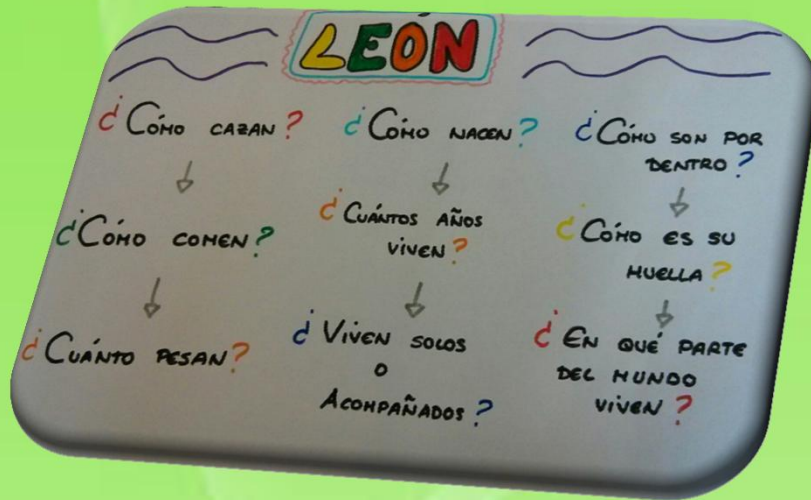 LEÓN
¿CÓMO CAZAN?
¿CÓMO COMEN?
¿CUÁNTO PESAN?
¿CÓMO NACEN?
¿CUÁNTOS AÑOS
VIVEN?
¿VIVEN SOLOS
O
ACOMPAÑADOS?
¿CÓMO SON POR
DENTRO?
¿CÓMO ES SU
HUELLA?
¿EN QUÉ PARTE
DEL MUNDO
VIVEN?